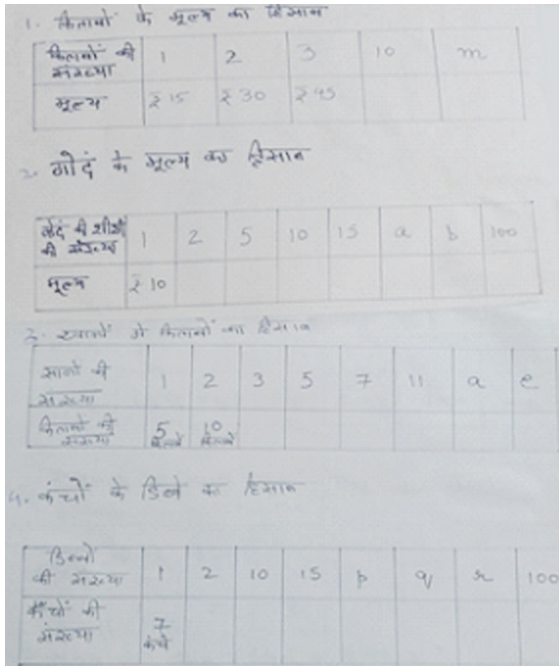 1. किताबों के मूल्य का हिसाब
किताबों की संख्या 1 2 3 10 m
मूल्य ₹ 15 ₹ 30 ₹ 45
2. गोंद के मूल्य का हिसाब
गोंद की शीशी की संख्या 1 2 5 10 15 a b 100
मूल्य ₹ 10
3. खानों में किताबों का हिसाब
खानों की संख्या 1 2 3 5 7 11 a e
किताबों की संख्या 5 किताबें 10 किताबें
4. कंचों के डिब्बे का हिसाब
डिब्बों की संख्या 1 2 10 15 p q r 100
कंचों की संख्या 7 कंचे